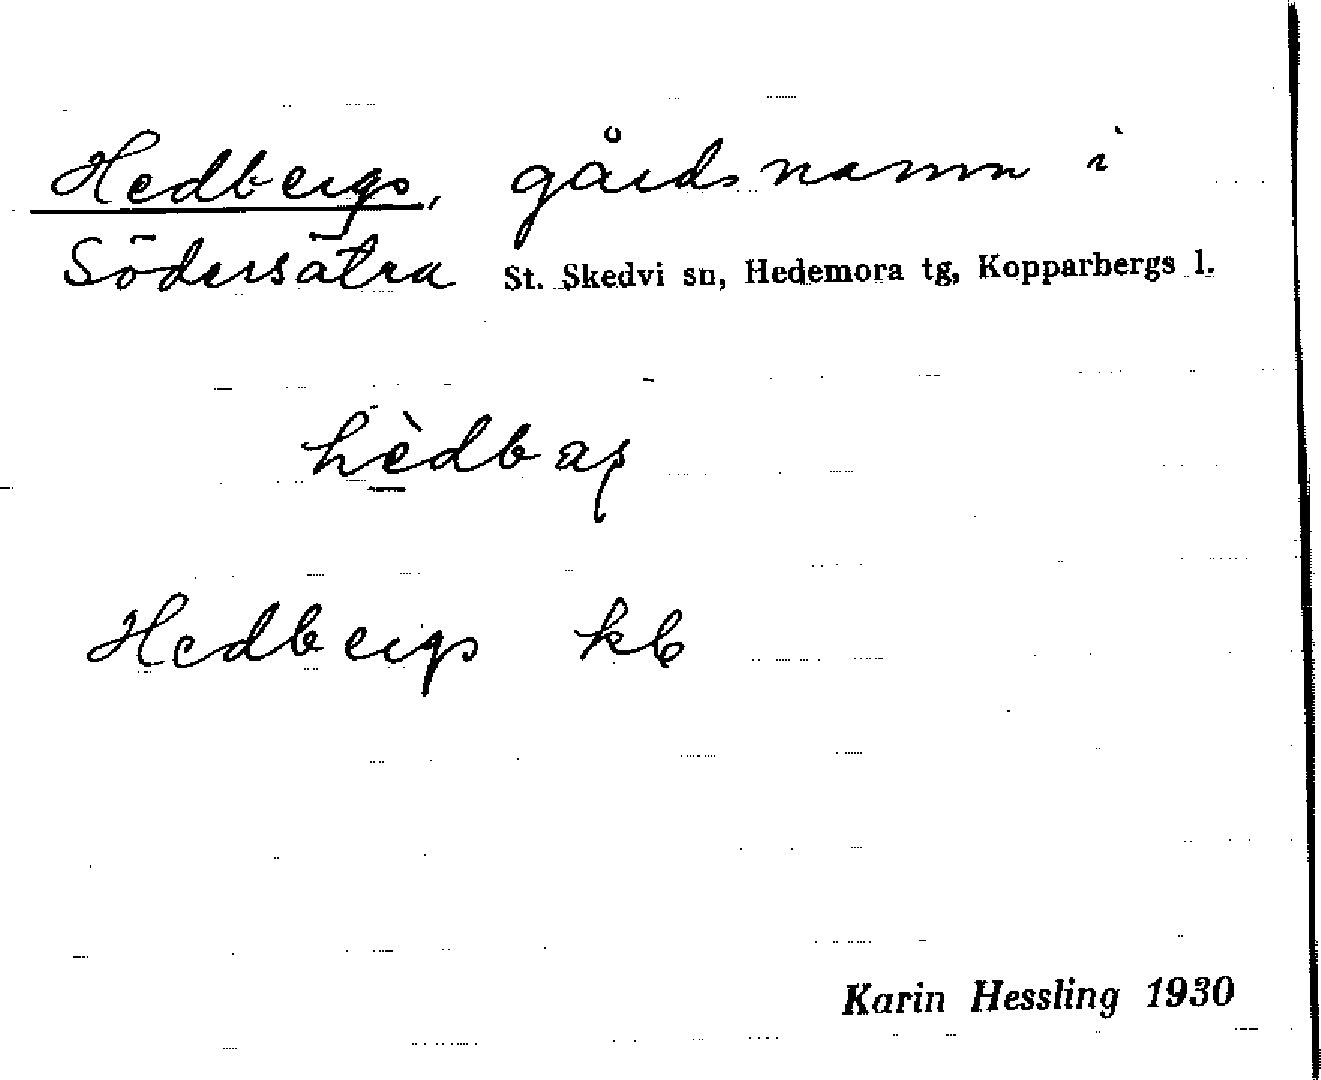 Hedbergs, gårdsnamn i
Södersätra St. Skedvi sn, Hedemora tg, Kopparbergs l.
hèdbaş
Hedbergs kb
Karin Hessling 1930